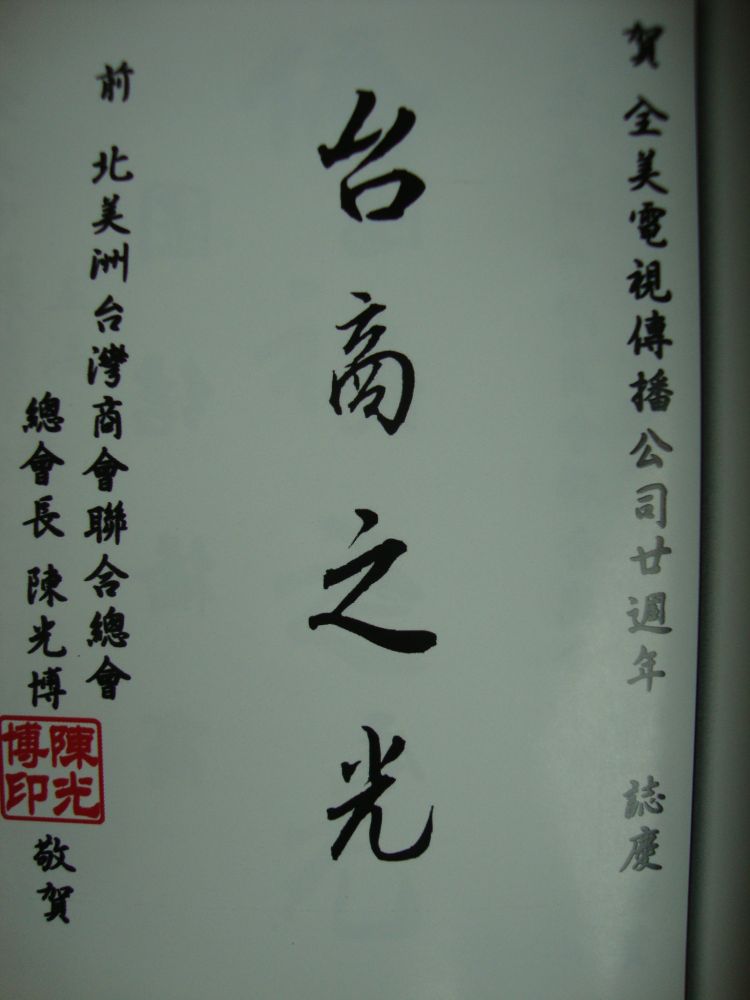 賀 全美電視傳播公司廿週年 誌慶
台商之光
前 北美洲台灣商會聯合總會
總會長 陳光博
陳光
博印
敬賀